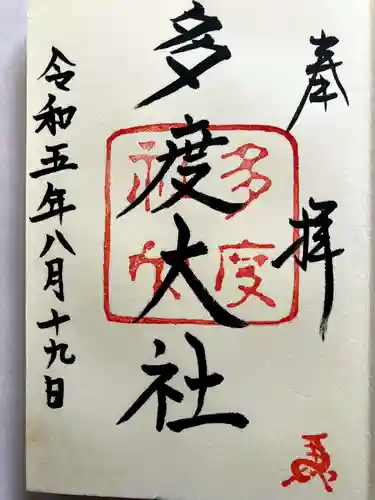 奉拝
多度大社
多度
令和五年八月十九日